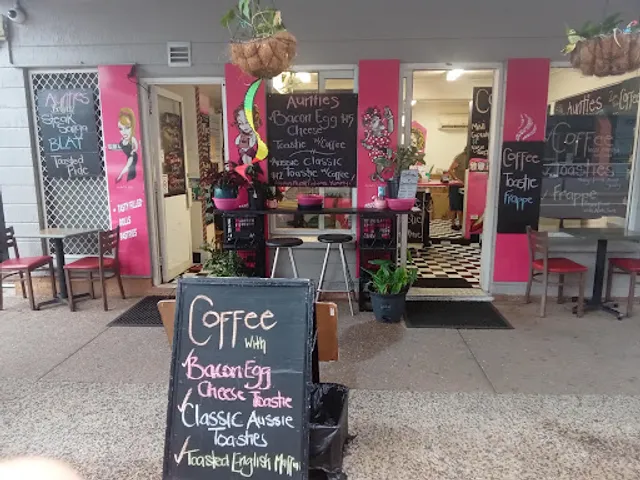 Aunties
Steak
Sanga
BLAT
Toasted
Pide
TASTY FILLED
ROLLS
TOASTIES
Aunties $15
Bacon Egg
Cheese
Toastie & Coffee
Aussie Classic
$12 Toastie & Coffee
Coffee
Toastie
Frappe
Aunties
Coffee
Toastie
Frappe
Coffee
with
✓Bacon Egg
Cheese Toastie
✓Classic Aussie
Toasties
✓Toasted English Muffin